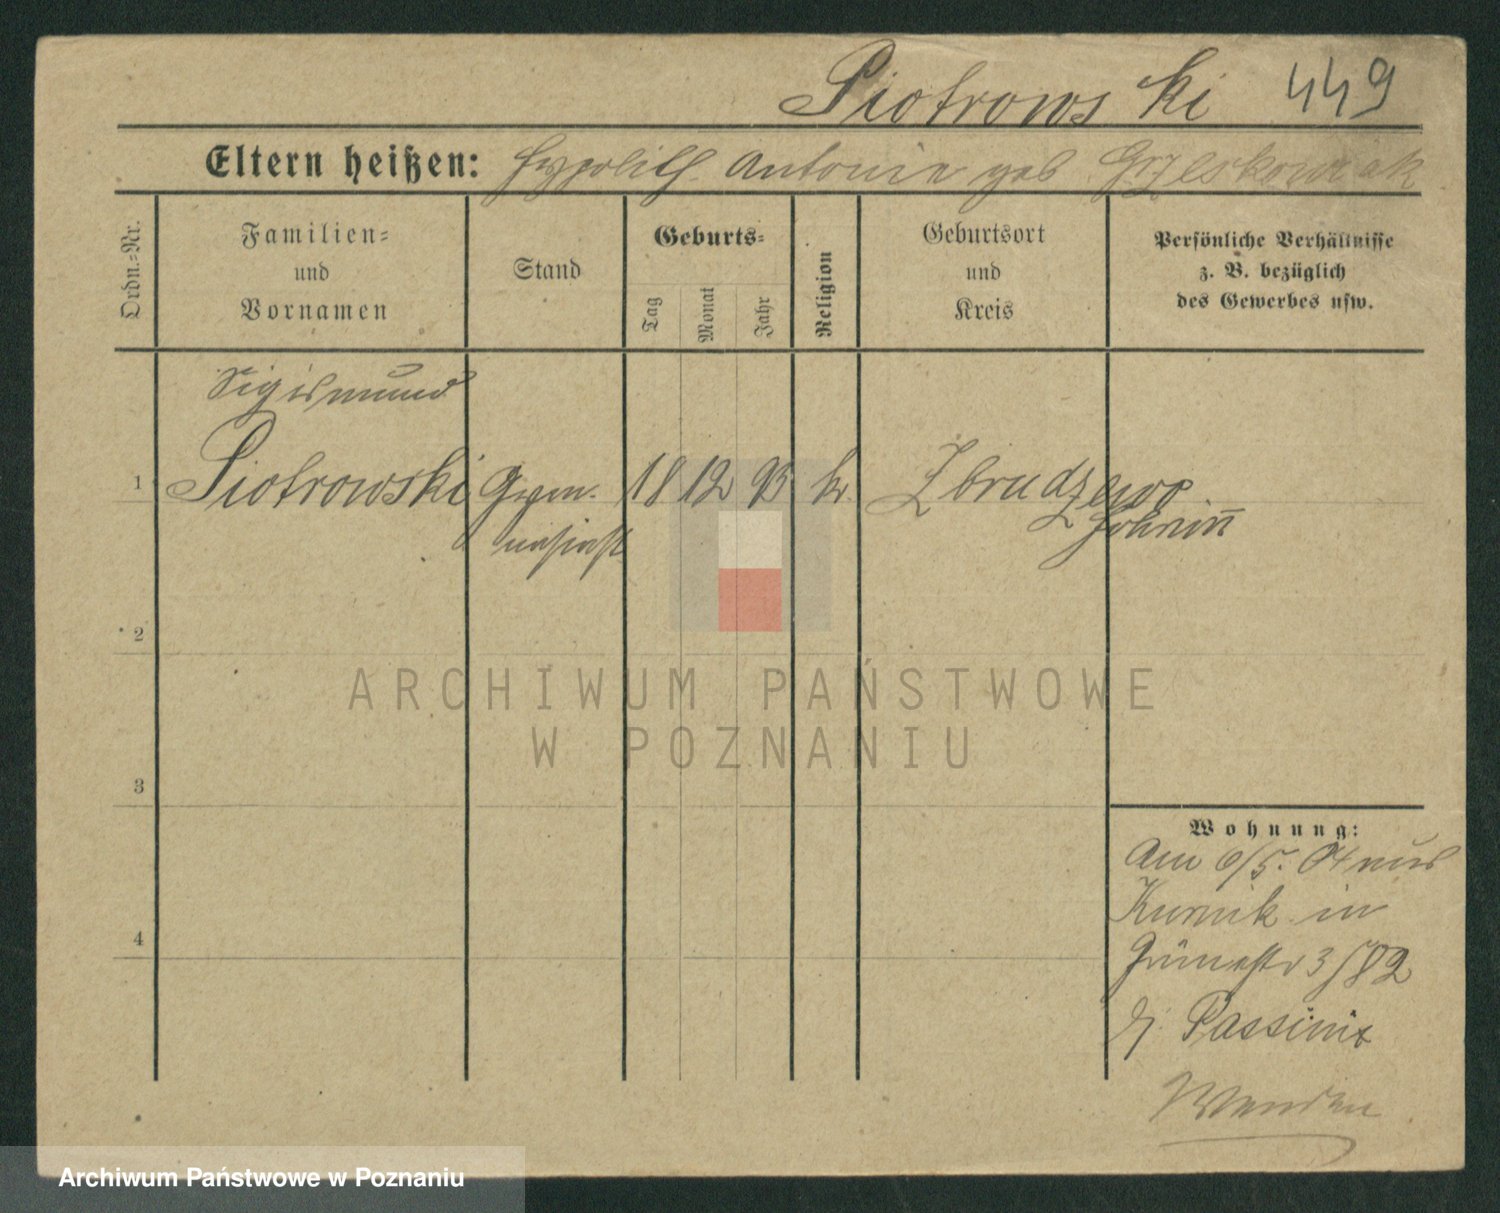 Piotrowski 449
Eltern heißen: Hypolith Antonie geb Grzeskowiak
Ordn.-Nr.
Familien-
und
Vornamen
Stand
Geburts-
Tag
Monat
Jahr
Religion
Geburtsort
und
Kreis
Persönliche Verhältnisse
z. B. bezüglich
des Gewerbes usw.
Sigismund
1 Piotrowski Gym- 18 12 93 k. Zbrudzewo
nasiast Schrim̄
2
3
4
Wohnung:
Am 6/5. 04 aus
Kurnik in
Grünestr 3/82
b/ Passinit
Wenden
ARCHIWUM PAŃSTWOWE
W POZNANIU
Archiwum Państwowe w Poznaniu